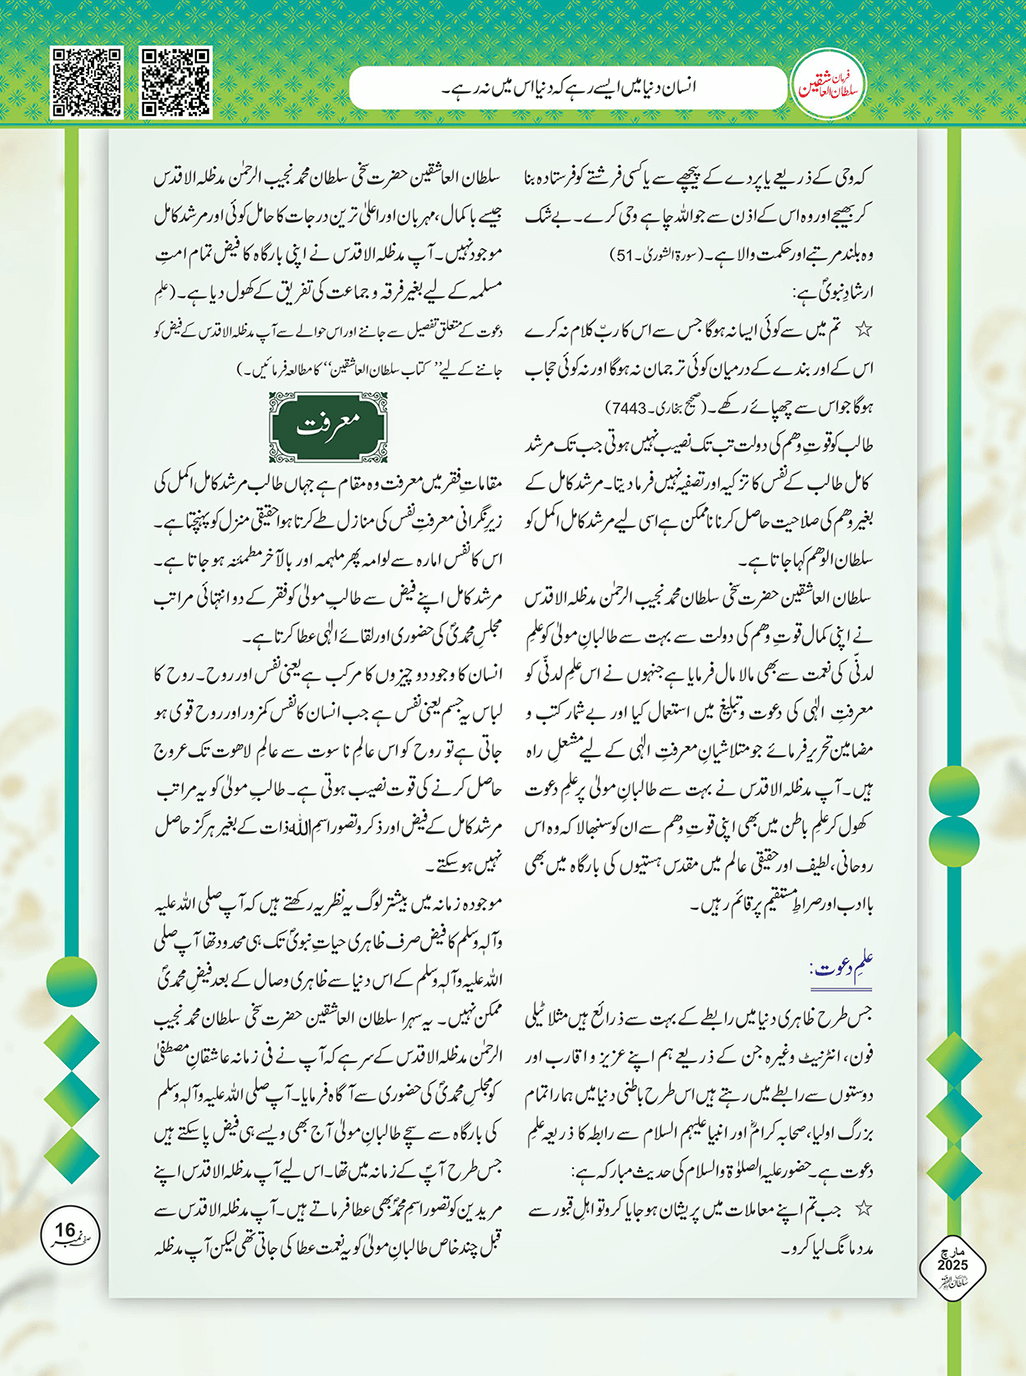 فرمان سلطان العاشقین
انسان دنیا میں ایسے رہے کہ دنیا اس میں نہ رہے۔
کہ وحی کے ذریعے یا پردے کے پیچھے سے یا کسی فرشتے کو فرستادہ بنا
کر بھیجے اور وہ اس کے اذن سے جو اللہ چاہے وحی کرے۔ بے شک
وہ بلند مرتبے اور حکمت والا ہے۔ (سورۃ الشوریٰ۔51)
ارشادِ نبویؐ ہے:
☆ تم میں سے کوئی ایسا نہ ہوگا جس سے اس کا ربّ کلام نہ کرے
اس کے اور بندے کے درمیان کوئی ترجمان نہ ہوگا اور نہ کوئی حجاب
ہوگا جو اسے چھپائے رکھے۔ (صحیح بخاری۔7443)
طالب کو قوتِ وھم کی دولت تب تک نصیب نہیں ہوتی جب تک مرشد
کامل طالب کے نفس کا تزکیہ اور تصفیہ نہیں فرما دیتا۔ مرشد کامل کے
بغیر وھم کی صلاحیت حاصل کرنا ناممکن ہے اسی لیے مرشد کامل اکمل کو
سلطان الوھم کہا جاتا ہے۔
سلطان العاشقین حضرت سخی سلطان محمد نجیب الرحمٰن مدظلہ الاقدس
نے اپنی کمال قوتِ وھم کی دولت سے بہت سے طالبانِ مولیٰ کو علمِ
لدنّی کی نعمت سے بھی مالا مال فرمایا ہے جنہوں نے اس علمِ لدنّی کو
معرفتِ الٰہی کی دعوت و تبلیغ میں استعمال کیا اور بے شمار کتب و
مضامین تحریر فرمائے جو متلاشیانِ معرفتِ الٰہی کے لیے مشعلِ راہ
ہیں۔ آپ مدظلہ الاقدس نے بہت سے طالبانِ مولیٰ پر علمِ دعوت
کھول کر علمِ باطن میں بھی اپنی قوتِ وھم سے ان کو سنبھالا کہ وہ اس
روحانی، لطیف اور حقیقی عالم میں مقدس ہستیوں کی بارگاہ میں بھی
باادب اور صراطِ مستقیم پر قائم رہیں۔
علمِ دعوت:
جس طرح ظاہری دنیا میں رابطے کے بہت سے ذرائع ہیں مثلاً ٹیلی
فون، انٹرنیٹ وغیرہ جن کے ذریعے ہم اپنے عزیز و اقارب اور
دوستوں سے رابطے میں رہتے ہیں اس طرح باطنی دنیا میں ہمارا تمام
بزرگ اولیا، صحابہ کرامؓ اور انبیا علیہم السلام سے رابطہ کا ذریعہ علمِ
دعوت ہے۔ حضور علیہ الصلوٰۃ والسلام کی حدیث مبارکہ ہے:
☆ جب تم اپنے معاملات میں پریشان ہو جایا کرو تو اہلِ قبور سے
مدد مانگ لیا کرو۔
سلطان العاشقین حضرت سخی سلطان محمد نجیب الرحمٰن مدظلہ الاقدس
جیسے باکمال، مہربان اور اعلیٰ ترین درجات کا حامل کوئی اور مرشد کامل
موجود نہیں۔ آپ مدظلہ الاقدس نے اپنی بارگاہ کا فیض تمام امتِ
مسلمہ کے لیے بغیر فرقہ و جماعت کی تفریق کے کھول دیا ہے۔ (علمِ
دعوت کے متعلق تفصیل سے جاننے اور اس حوالے سے آپ مدظلہ الاقدس کے فیض کو
جاننے کے لیے ’’کتاب سلطان العاشقین‘‘ کا مطالعہ فرمائیں۔)
معرفت
مقاماتِ فقر میں معرفت وہ مقام ہے جہاں طالب مرشد کامل اکمل کی
زیر نگرانی معرفتِ نفس کی منازل طے کرتا ہوا حقیقی منزل کو پہنچتا ہے۔
اس کا نفس امارہ سے لوامہ پھر ملہمہ اور بالآخر مطمئنہ ہو جاتا ہے۔
مرشد کامل اپنے فیض سے طالبِ مولیٰ کو فقر کے دو انتہائی مراتب
مجلسِ محمدیؐ کی حضوری اور لقائے الٰہی عطا کرتا ہے۔
انسان کا وجود دو چیزوں کا مرکب ہے یعنی نفس اور روح۔ روح کا
لباس یہ جسم یعنی نفس ہے جب انسان کا نفس کمزور اور روح قوی ہو
جاتی ہے تو روح کو اس عالمِ ناسوت سے عالمِ لاھوت تک عروج
حاصل کرنے کی قوت نصیب ہوتی ہے۔ طالبِ مولیٰ کو یہ مراتب
مرشد کامل کے فیض اور ذکر و تصور اسمِ اللہ ذات کے بغیر ہرگز حاصل
نہیں ہو سکتے۔
موجودہ زمانہ میں بیشتر لوگ یہ نظریہ رکھتے ہیں کہ آپ صلی اللہ علیہ
وآلہٖ وسلم کا فیض صرف ظاہری حیاتِ نبویؐ تک ہی محدود تھا آپ صلی
اللہ علیہ وآلہٖ وسلم کے اس دنیا سے ظاہری وصال کے بعد فیضِ محمدیؐ
ممکن نہیں۔ یہ سہرا سلطان العاشقین حضرت سخی سلطان محمد نجیب
الرحمٰن مدظلہ الاقدس کے سر ہے کہ آپ نے فی زمانہ عاشقانِ مصطفیٰؐ
کو مجلسِ محمدیؐ کی حضوری سے آگاہ فرمایا۔ آپ صلی اللہ علیہ وآلہٖ وسلم
کی بارگاہ سے سچے طالبانِ مولیٰ آج بھی ویسے ہی فیض پا سکتے ہیں
جس طرح آپؐ کے زمانہ میں تھا۔ اس لیے آپ مدظلہ الاقدس اپنے
مریدین کو تصور اسمِ محمدؐ بھی عطا فرماتے ہیں۔ آپ مدظلہ الاقدس سے
قبل چند خاص طالبانِ مولیٰ کو یہ نعمت عطا کی جاتی تھی لیکن آپ مدظلہ
صفحہ نمبر 16
مارچ
2025
سلطان الفقر